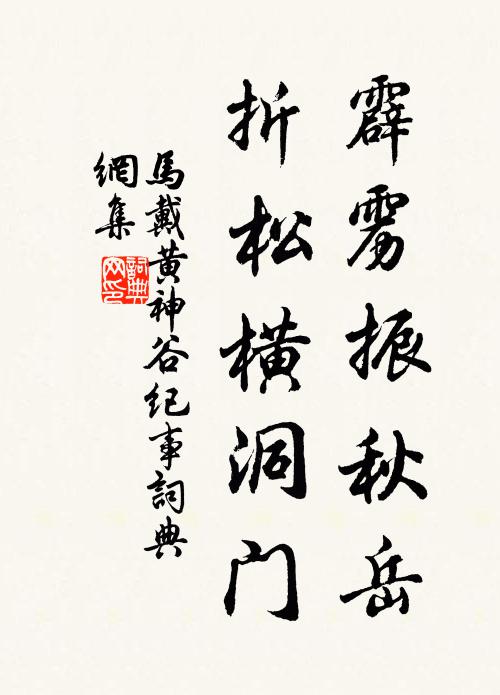 霹雳振秋岳
折松横洞门
馬戴黄神谷纪事詞典
網集
詞典
网印